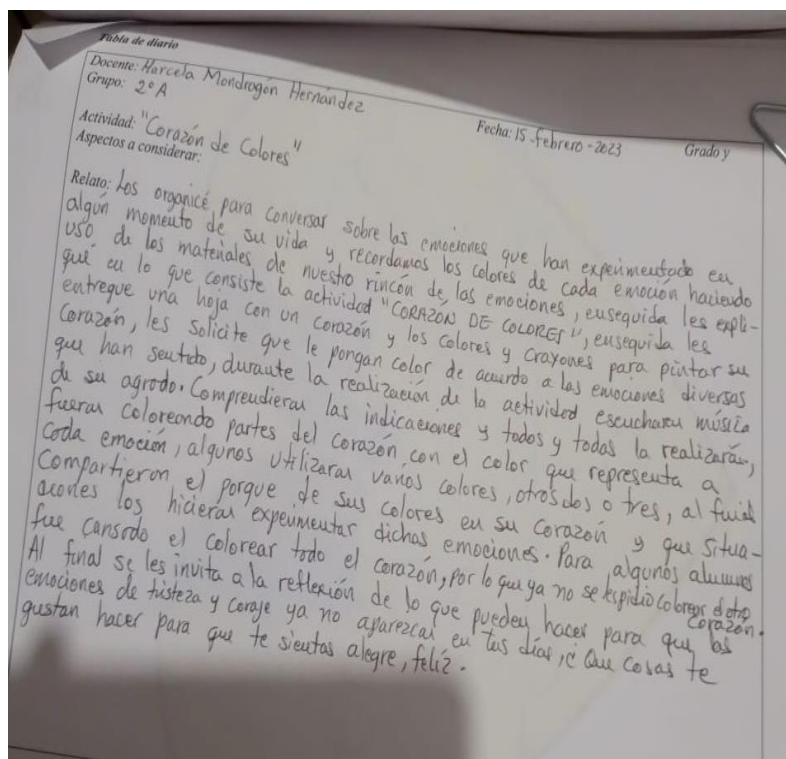 Tabla de diario
Docente: Marcela Mondragón Hernández
Grupo: 2° A
Fecha: 15-febrero-2023 Grado y
Actividad: "Corazón de Colores"
Aspectos a considerar:
Relato: Los organicé para conversar sobre las emociones que han experimentado en
algún momento de su vida y recordamos los colores de cada emoción haciendo
uso de los materiales de nuestro rincón de las emociones, enseguida les expli-
qué en lo que consiste la actividad "CORAZÓN DE COLORES", enseguida les
entregue una hoja con un corazón y los colores y crayones para pintar su
Corazón, les solicite que le pongan color de acuerdo a las emociones diversas
que han sentido, durante la realización de la actividad escucharan música
de su agrado. Comprendieran las indicaciones y todos y todas la realizarán,
fueran coloreando partes del corazón con el color que representa a
cada emoción, algunos utilizaran varios colores, otros dos o tres, al final
Compartieron el porque de sus colores en su corazón y que situa-
aciones los hicieran experimentar dichas emociones. Para algunos alumnos
fue cansado el colorear todo el corazón, por lo que ya no se les pidio colorear el otro
corazón.
Al final se les invita a la reflexión de lo que pueden hacer para que las
emociones de tristeza y coraje ya no aparezcan en tus días, ¿ Que cosas te
gustan hacer para que te sientas alegre, feliz.